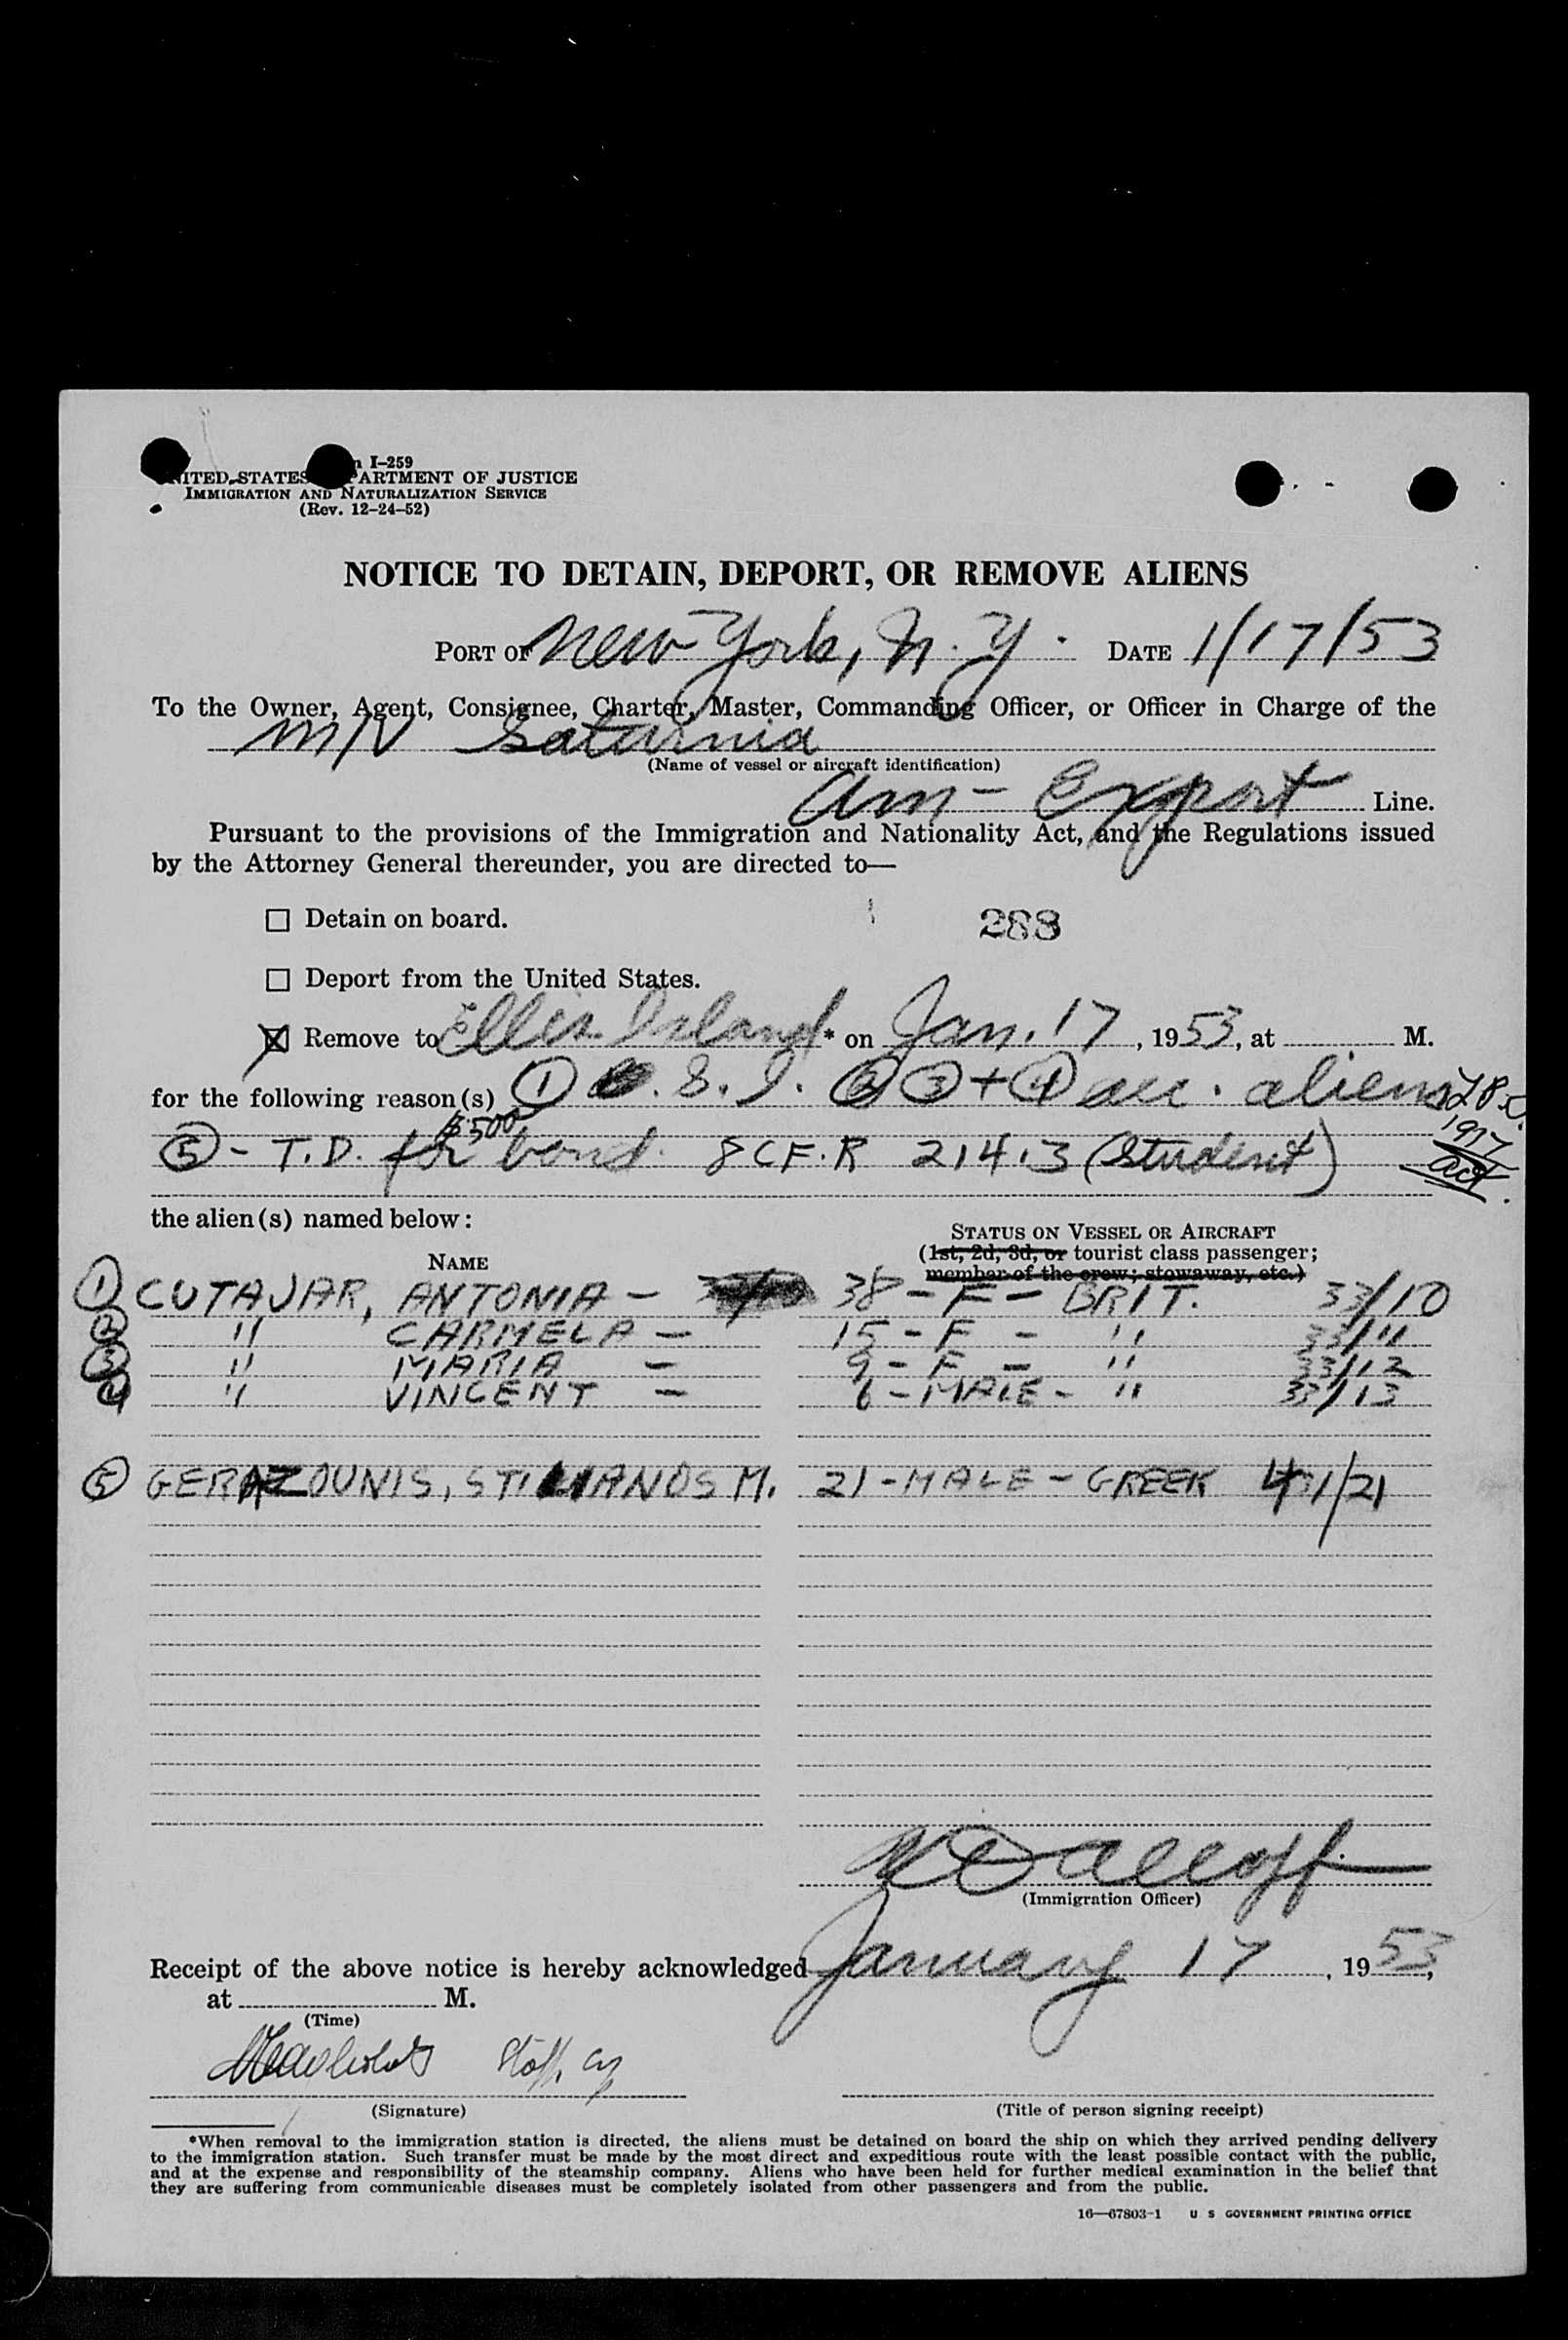 I-259
UNITED STATES DEPARTMENT OF JUSTICE
IMMIGRATION AND NATURALIZATION SERVICE
(Rev. 12-24-52)
NOTICE TO DETAIN, DEPORT, OR REMOVE ALIENS
PORT OF New York, N.Y. DATE 1/17/53
To the Owner, Agent, Consignee, Charter, Master, Commanding Officer, or Officer in Charge of the
M/V Saturnia
(Name of vessel or aircraft identification)
Am- Export Line.
Pursuant to the provisions of the Immigration and Nationality Act, and the Regulations issued
by the Attorney General thereunder, you are directed to—
☐ Detain on board.
288
☐ Deport from the United States.
☒ Remove to Ellis Island * on Jan. 17, 1953, at M.
for the following reason(s) ① S. I. ② ③ + ④ acc. aliens
1917
Act.
$500
⑤ - T.D. for bond. 8 CF.R 214.3 (Student)
the alien(s) named below:
STATUS ON VESSEL OR AIRCRAFT
NAME
(1st, 2d, 3d, or tourist class passenger;
member of the crew; stowaway, etc.)
① CUTAJAR, ANTONIA - 38 - F - BRIT. 33/10
② " CARMELA - 15 - F - " 33/11
③ " MARIA - 9 - F - " 33/12
④ " VINCENT - 6 - MALE - " 33/13
⑤ GERAZOUNIS, STILIANOS M. 21 - MALE - GREEK 41/21
(Immigration Officer)
Receipt of the above notice is hereby acknowledged January 17, 1953,
at M.
(Time)
(Signature)
(Title of person signing receipt)
*When removal to the immigration station is directed, the aliens must be detained on board the ship on which they arrived pending delivery
to the immigration station. Such transfer must be made by the most direct and expeditious route with the least possible contact with the public,
and at the expense and responsibility of the steamship company. Aliens who have been held for further medical examination in the belief that
they are suffering from communicable diseases must be completely isolated from other passengers and from the public.
16—67803-1 U S GOVERNMENT PRINTING OFFICE